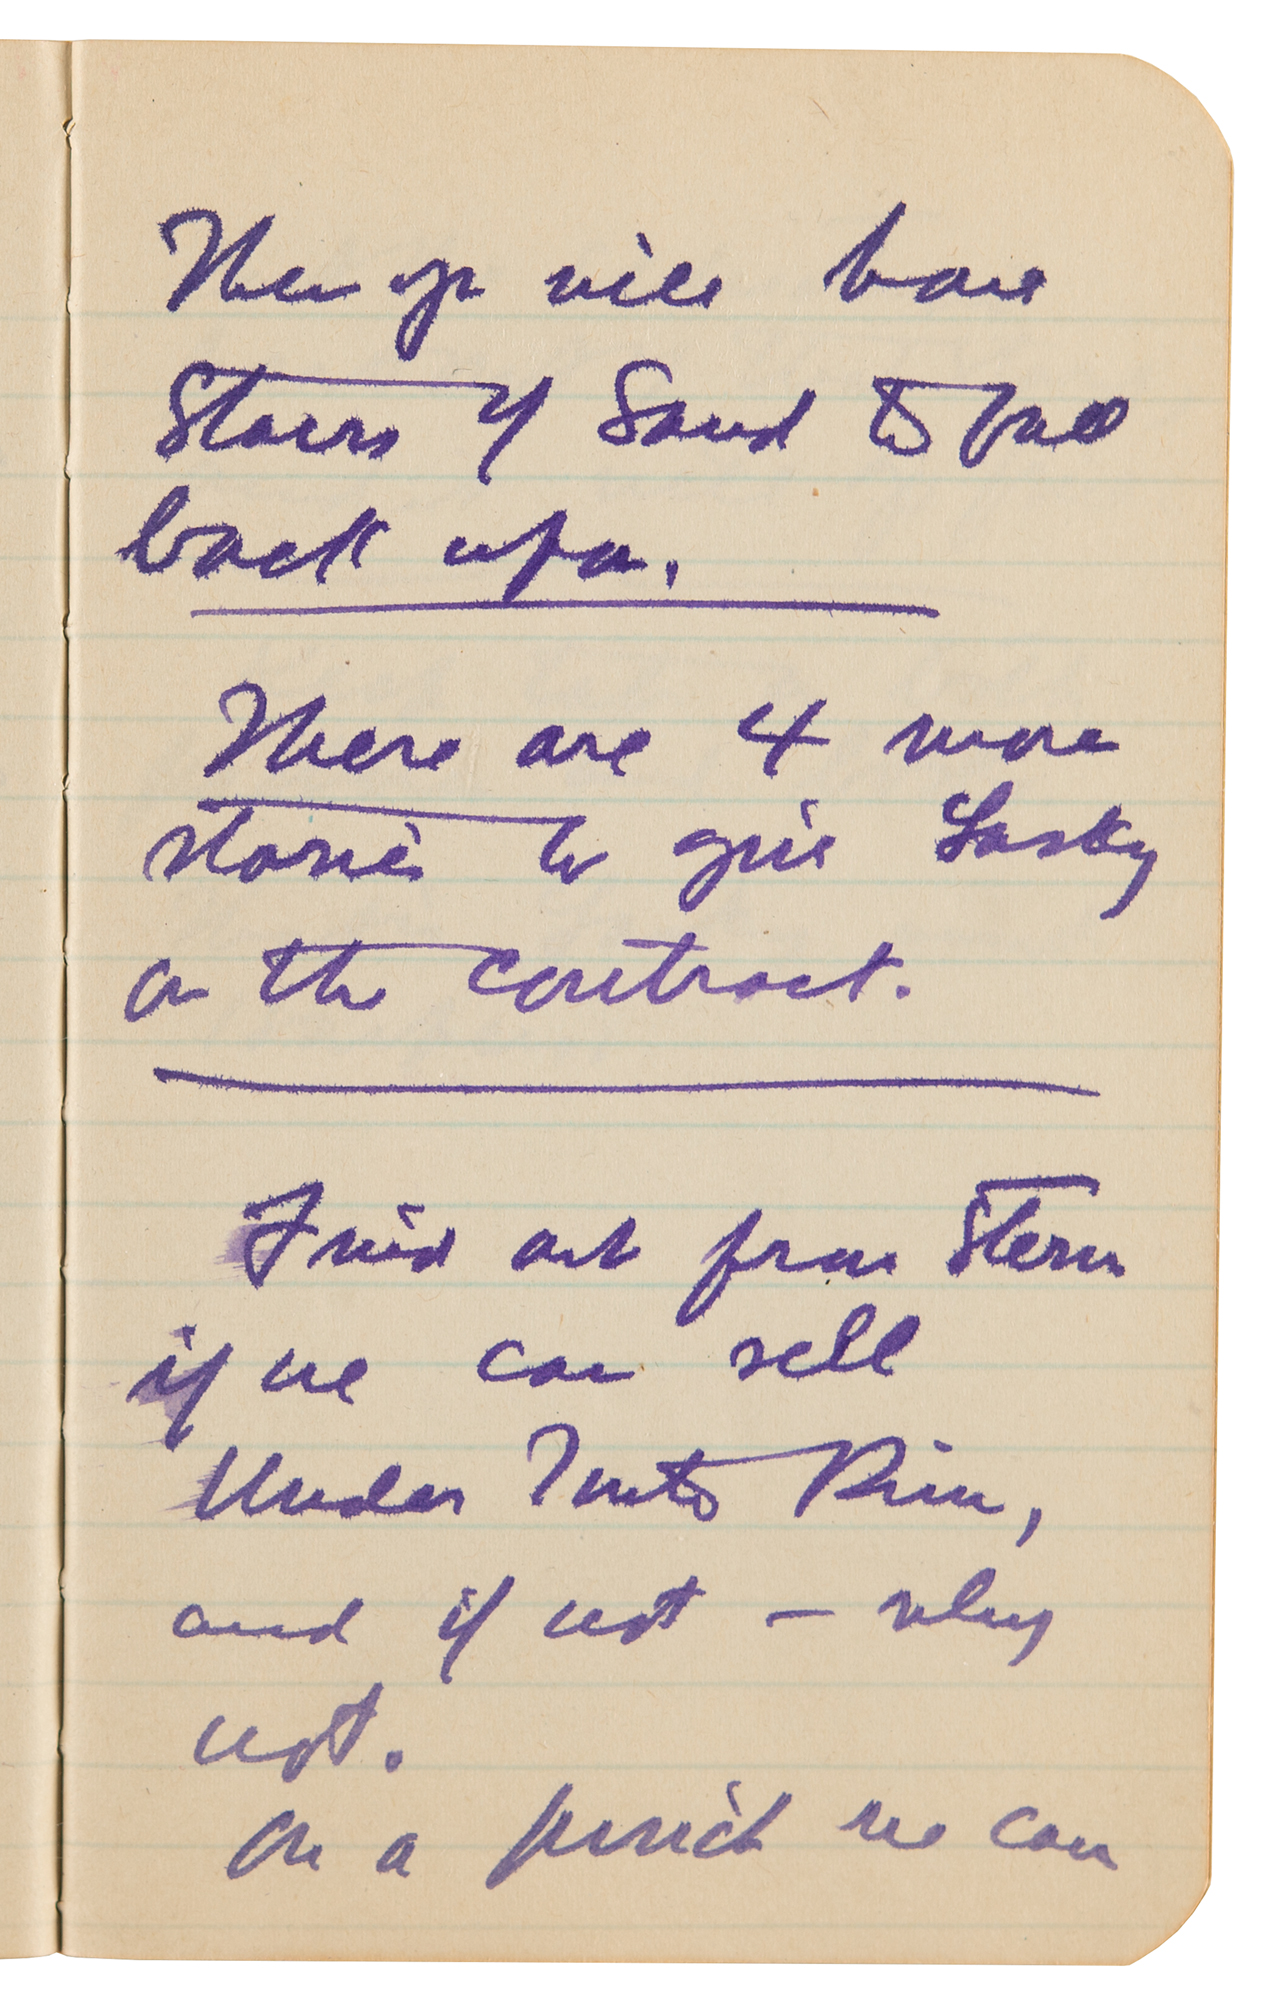 Then you will have
Stairs of Sand to fall
back upon.
There are 4 more
stories to give Lasky
on the contract.
Find out from Stern
if we can sell
Under Tonto Rim,
and if not – why
not.
On a pinch we can